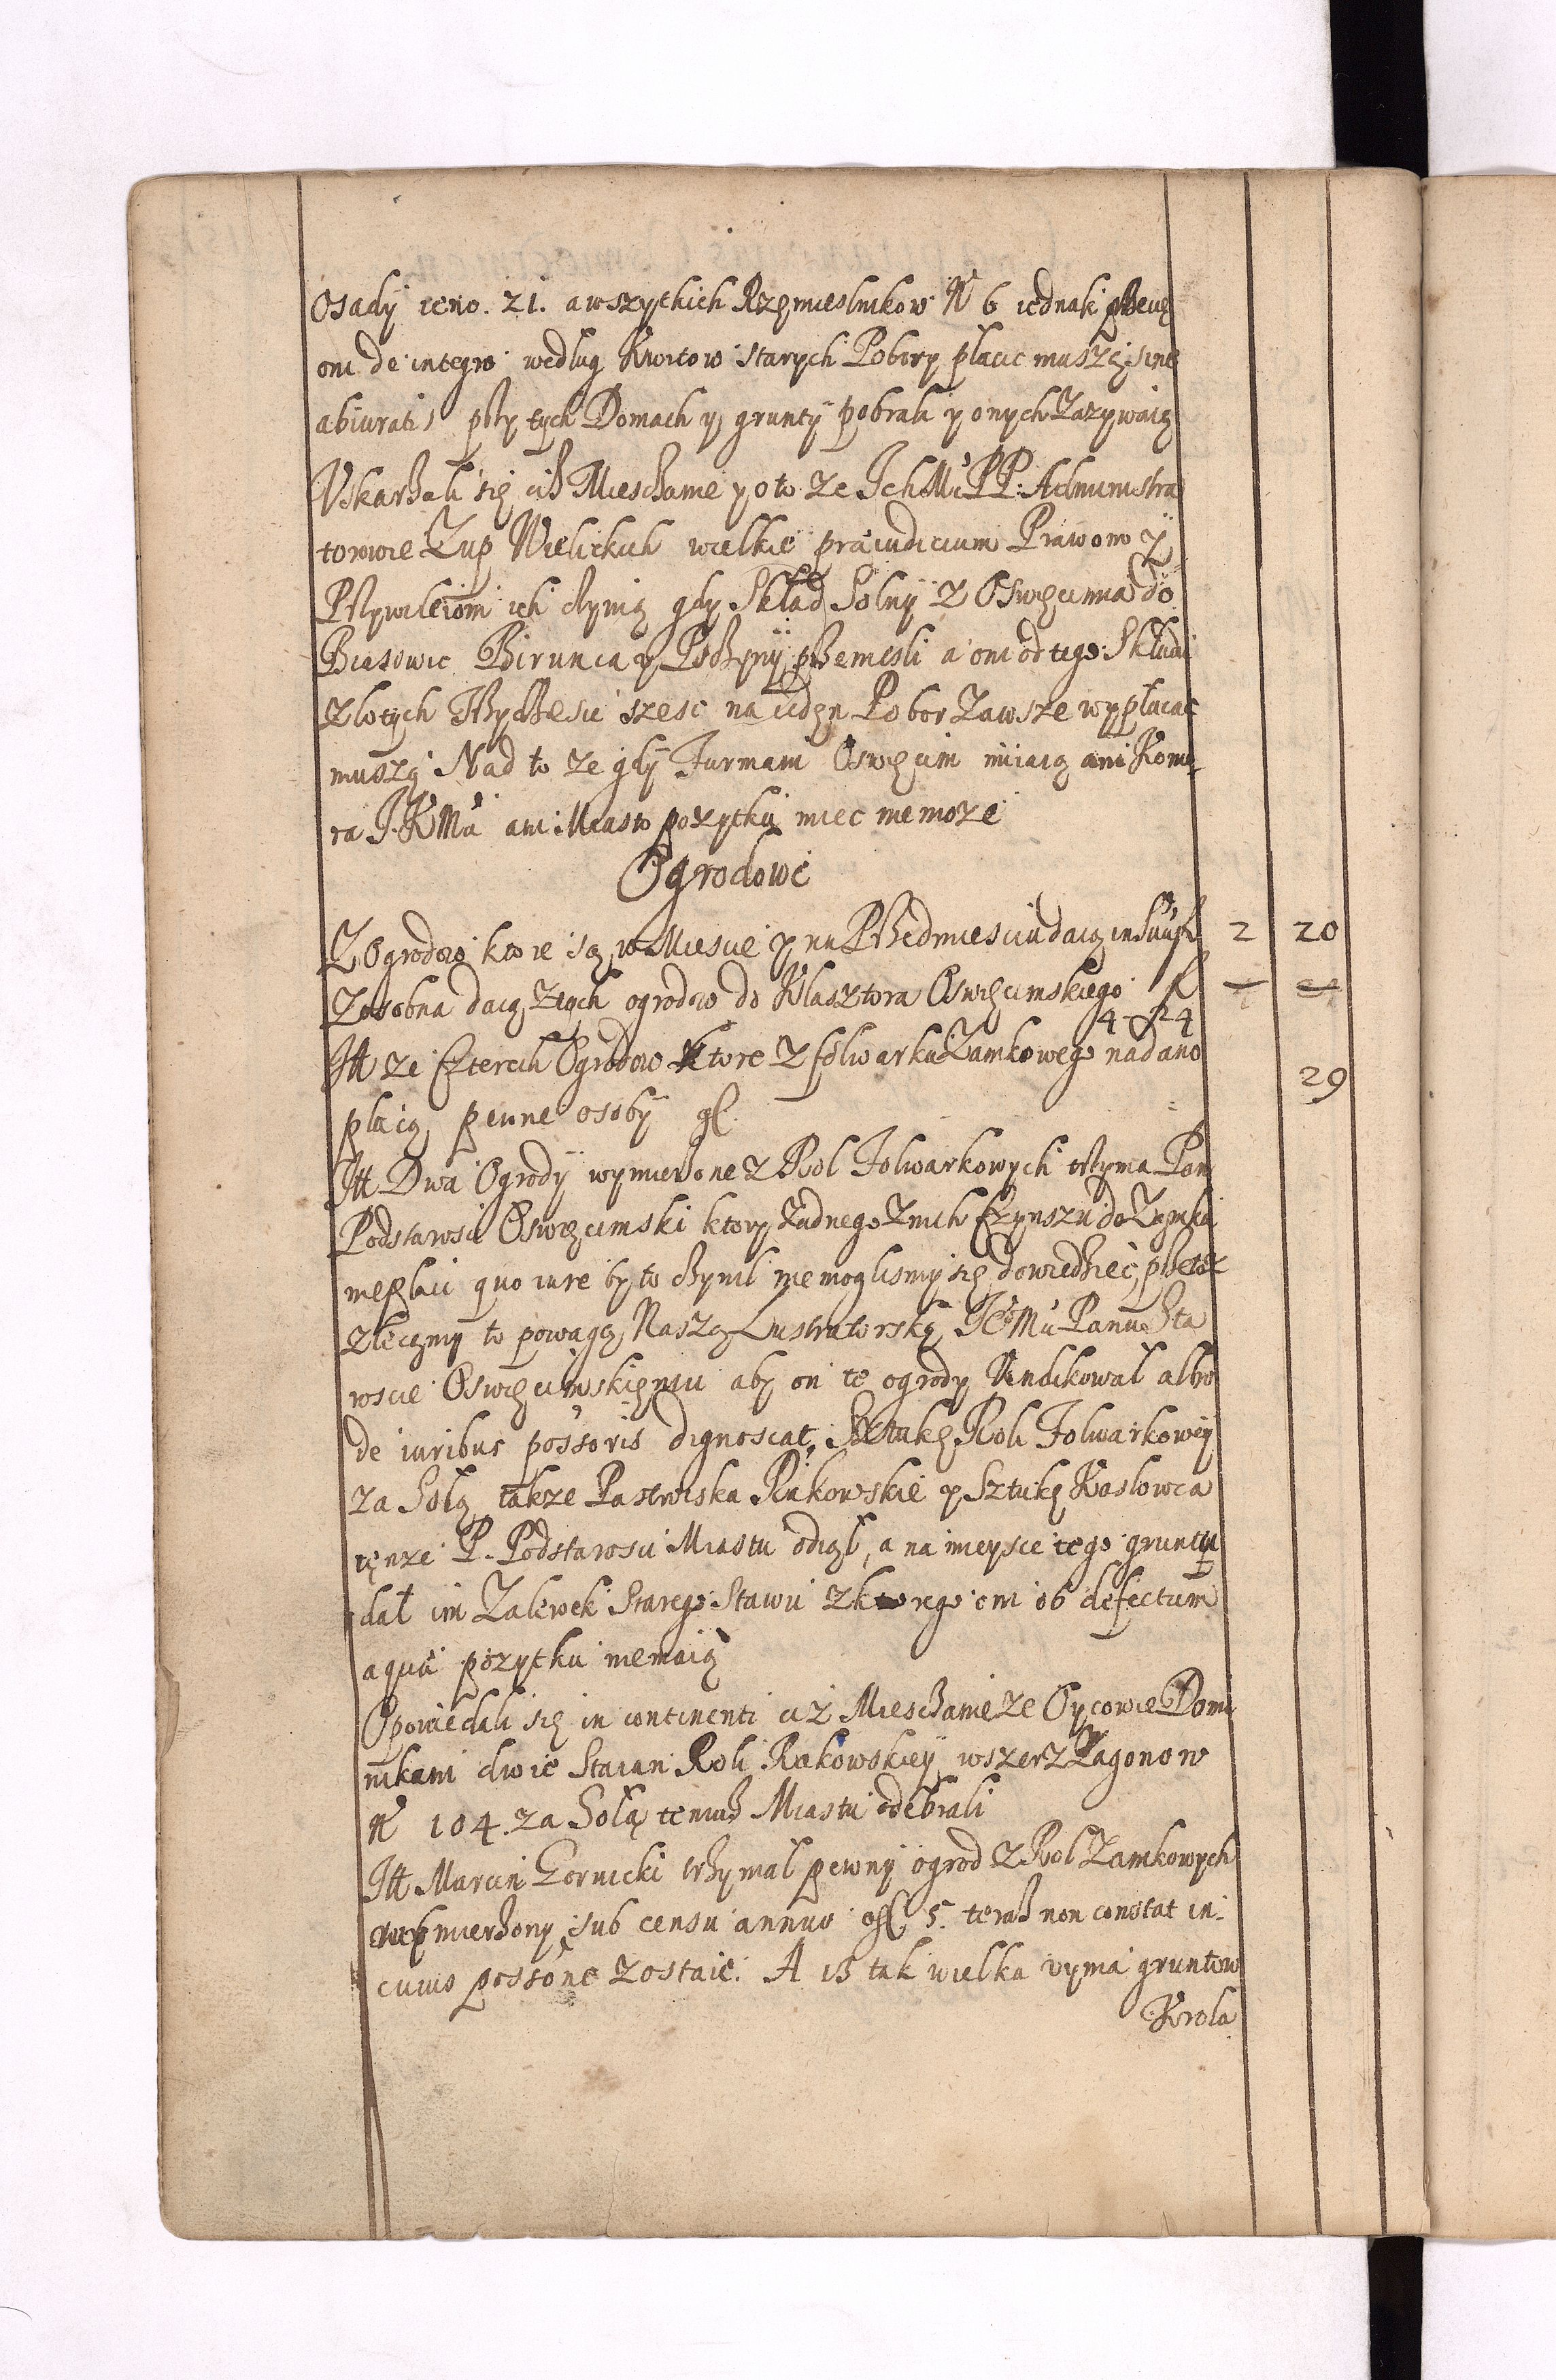 Osady ieno. 21. a wszytkich Rzemieslnikow N 6 iednak przecię
oni de integro według Kwitow starych Pobory płacic muszą sine
abiuratis przy tych Domach y grunty pobrali y onych Zazywaią
Vskarzali się ciż Miesczanie y o to ze Ich Mć PP. Administra
torowie Zup Wielickich wielkie praeiudicium Prawom y
Przywileiom ich czynią gdy Skład Solny z Oswięcimia do
Biasowic Birunia y Pszczyny przeniesli a oni od tego Składu
złotych Trzydziesci szesc na ieden Pobor Zawsze wypłacac
muszą Nad to ze gdy Furmani Oswięcim miiaią ani Komo-
ra J.K Mci ani Miasto pozytku miec niemoze
Ogrodowe
Z Ogrodow ktore są w Miescie y na Przedmiesciu daią in Sum̃ f 2 20
Zosobna daią z tych ogrodow do Klasztora Oswięcimskiego f
4 24
Itt ze Czterech Ogrodow ktore z folwarku Zamkowego nadano
płacą pewne osoby gl 29
Itt Dwa Ogrody wymierzone z Rol Folwarkowych trzyma Pan
Podstarosci Oswięcimski ktory Zadnego Znich Czynszu do Zamku
niepłaci quo iure by to czynił niemoglismy się dowiedziec, przetoz
zlecamy to powagą Naszą Lustratorską Jeo Mci Panu Sta
roscie Oswięcimskiemu aby on te ogrody Vindikował albo
de iuribus possoris dignoscat, Sztukę Roli Folwarkowey
za Sołą takze Pastwiska Rakowskie y Sztukę Kosłowca
tenze P. Podstarosci Miastu odiął, a na mieysce tego gruntu
dał im Zalewek Starego Stawu z ktorego oni ob defectum
aquae pozytku niemaią
Opowiedali się in continenti ciz Miesczanie ze Oycowie Domi
nikani dwie Staian Roli Rakowskiey wszerz Zagonow
N 104. za Sołą temuz Miastu odebrali
Itt Marcin Gornicki trzymał pewny ogrod z Rol Zamkowych
wymierzony sub censu annuo gl 5. teraz non constat in
cuius possone zostaie. A iz tak wielka vyma gruntow
Krola